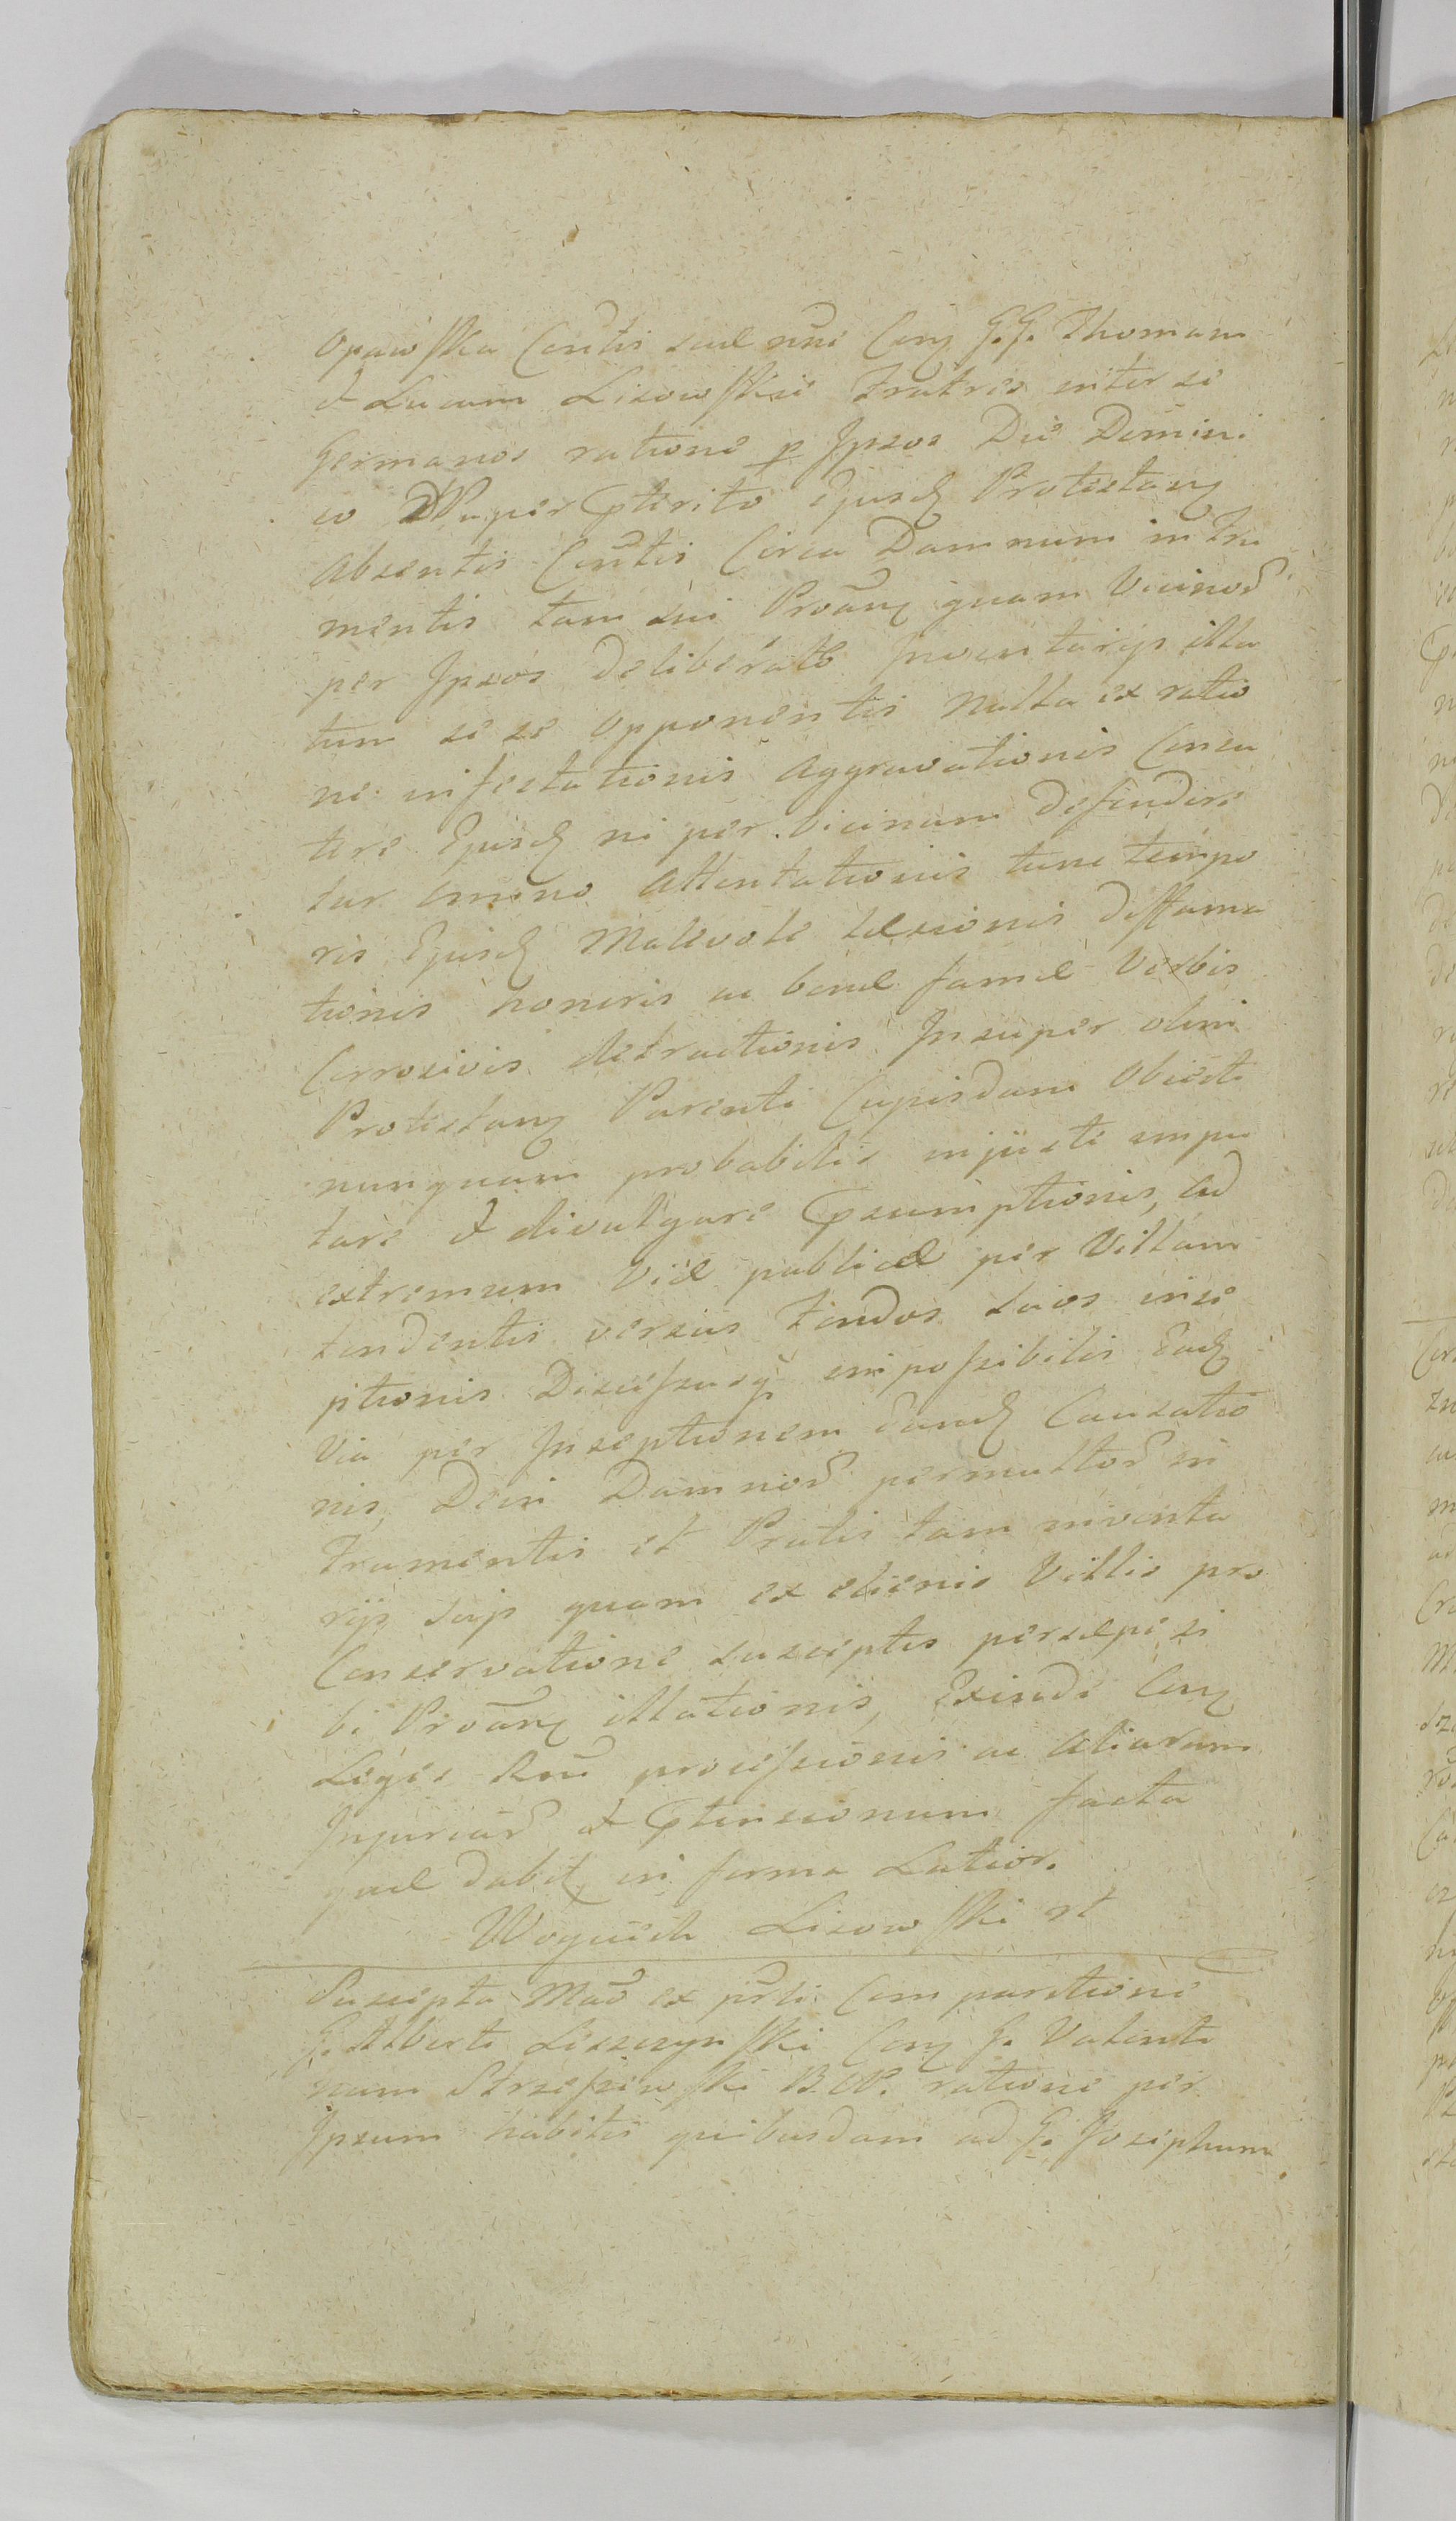 Opawska Contis sad nni Conq G. G. Thomam
& Lucam Lisowskie Fratres inter se
Germanos ratione p Ipsos Die Domini
co Nuper Pterito Ejusdq Protestanq
Absentis Contis Circa Damnum in Fru
mentis tam sui Protanq quam Vicinor
per Ipsos deliberate Inventarijs illa
tum se se opponentis nulla ex ratio
ne infestationis Aggravationis Conscu
tere Ejusdq ni per Vicinum defendere
tur omino Attentationis tunc tempo
ris Ejusdq Malevole læsionis diffama
tionis honoris ac bonæ famæ Verbis
Corrosivis detractionis Insuper olim
Protestanq Parenti Cujusdam Obiecti
nunquam probabilis injuste impu
tare & divulgare Psumptionis, ad
extremum Viæ publicæ per Villam
tendentis versus Fundos suos inse
ptionis Discussusq impossibilis Eadq
Via per Inseptionem Eandq Causatio
nis, Dein Damnor permultor in
Frumentis et Pratis tam inventa
rijs suis quam ex alienis Villis pro
Conservatione susceptis persæpe si
bi Protanq illationis, Exinde Conq
Leges Rni processionis ac Aliarum
Injuriar & Ptensionum facta
quæ dabit, in forma Latior.
Woyciech Lisowski st
Suscepta Mad ex prli Comparitione
G. Alberti Leszczynski Conq G. Valenti
num Strzeszewski B. P. ratione per
Ipsum habitis quibusdam ad G. Josephum